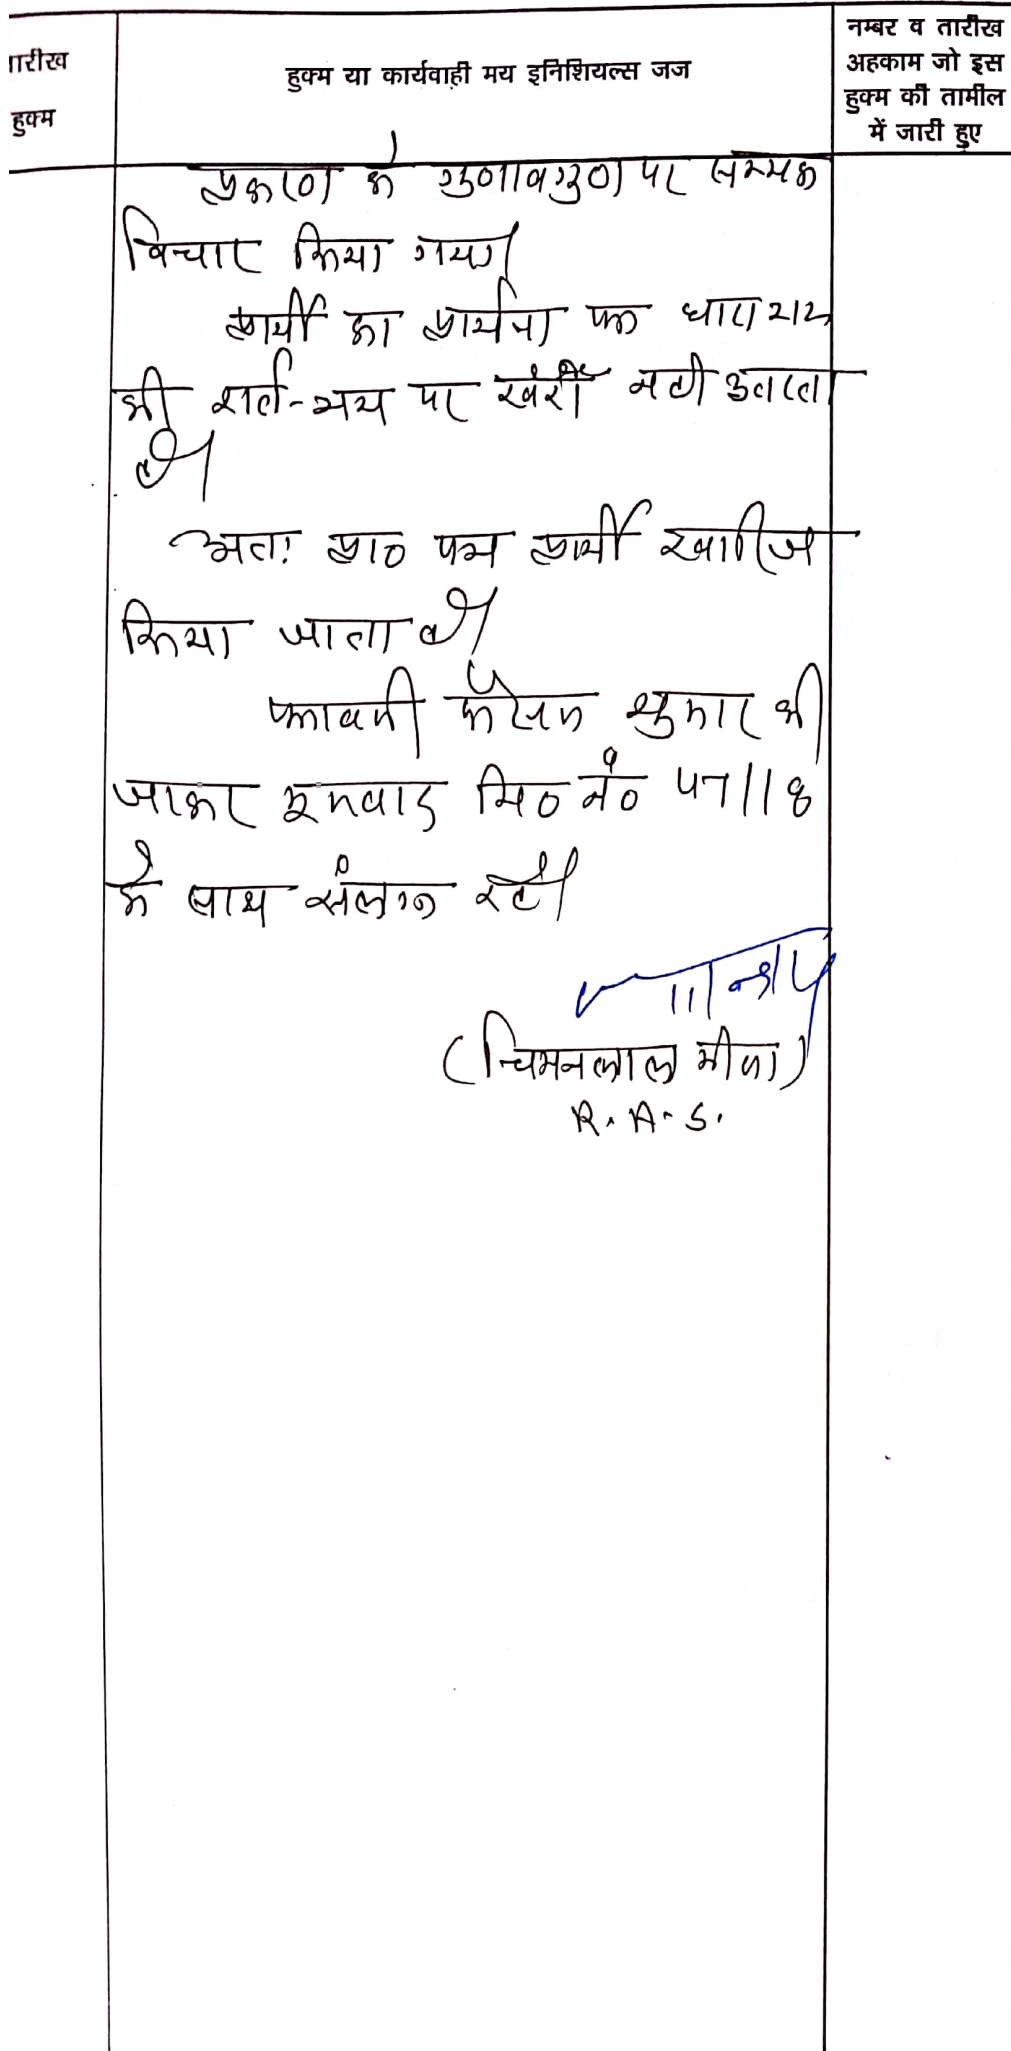 तारीख
हुक्म
हुक्म या कार्यवाही मय इनिशियल्स जज
नम्बर व तारीख
अहकाम जो इस
हुक्म की तामील
में जारी हुए
प्रकरण के गुणावगुण पर सम्यक
विचार किया गया।
प्रार्थी का प्रार्थना पत्र धारा
की शर्त-मय पर खरा नही उतरता
है।
अतः प्रा० पत्र प्रार्थी खारिज
किया जाता है।
पत्रावली फैसल शुमार की
जाकर मि० नं०
के साथ संलग्न रहे।
(चिमनलाल मीणा)
R. A. S.